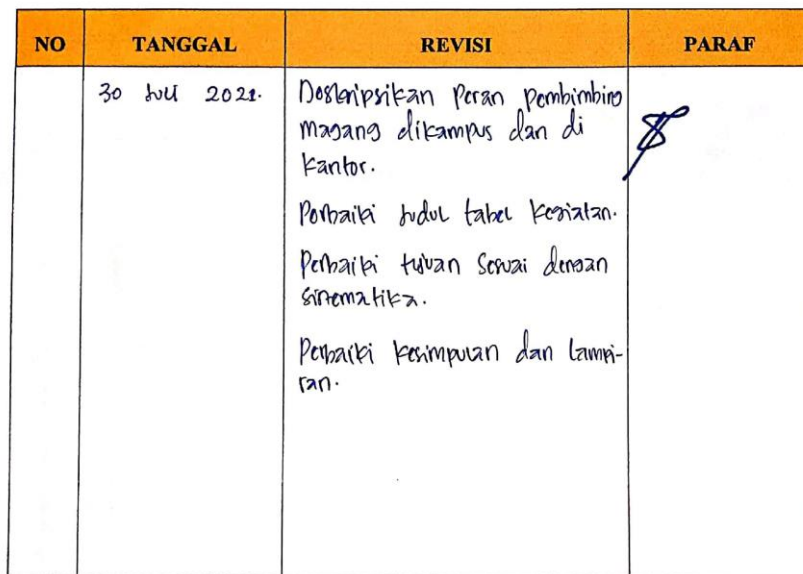 NO TANGGAL REVISI PARAF
30 Juli 2021. Deskripsikan Peran Pembimbing
magang dikampus dan di
kantor.
Perbaiki Judul tabel kegiatan.
Perbaiki tujuan sesuai dengan
sistematika.
Perbaiki kesimpulan dan lampi-
ran.